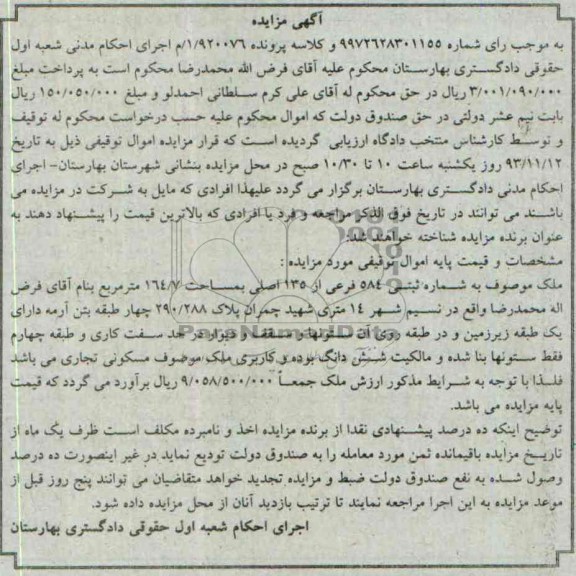 آگهی مزایده
به موجب رای شماره ۹۹۷۲۶۲۸۳۰۱۱۵۵ و کلاسه پرونده ۱/۹۲۰۰۷۶/م اجرای احکام مدنی شعبه اول
حقوقی دادگستری بهارستان محکوم علیه آقای فرض الله محمدرضا محکوم است به پرداخت مبلغ
۳/۰۰۱/۰۹۰/۰۰۰ ریال در حق محکوم له آقای علی کرم سلطانی احمدلو و مبلغ ۱۵۰/۰۵۰/۰۰۰ ریال
بابت نیم عشر دولتی در حق صندوق دولت که اموال محکوم علیه حسب درخواست محکوم له توقیف
و توسط کارشناس منتخب دادگاه ارزیابی گردیده است که قرار مزایده اموال توقیفی ذیل به تاریخ
۹۳/۱۱/۱۲ روز یکشنبه ساعت ۱۰ تا ۱۰/۳۰ صبح در محل مزایده بنشانی شهرستان بهارستان- اجرای
احکام مدنی دادگستری بهارستان برگزار می گردد علیهذا افرادی که مایل به شرکت در مزایده می
باشند می توانند در تاریخ فوق الذکر مراجعه و فرد یا افرادی که بالاترین قیمت را پیشنهاد دهند به
عنوان برنده مزایده شناخته خواهند شد.
مشخصات و قیمت پایه اموال توقیفی مورد مزایده :
ملک موصوف به شماره ثبتی ۵۸۴ فرعی از ۱۳۵ اصلی بمساحت ۱۶۴/۷ مترمربع بنام آقای فرض
اله محمدرضا واقع در نسیم شهر ۱۴ متری شهید چمران پلاک ۲۹۰/۲۸۸ چهار طبقه بتن آرمه دارای
یک طبقه زیرزمین و در طبقه روی آن ستونها و سقف و دیوار در حد سفت کاری و طبقه چهارم
فقط ستونها بنا شده و مالکیت شش دانگ بوده و کاربری ملک موصوف مسکونی تجاری می باشد
فلذا با توجه به شرایط مذکور ارزش ملک جمعاً ۹/۰۵۸/۵۰۰/۰۰۰ ریال برآورد می گردد که قیمت
پایه مزایده می باشد.
توضیح اینکه ده درصد پیشنهادی نقدا از برنده مزایده اخذ و نامبرده مکلف است ظرف یک ماه از
تاریخ مزایده باقیمانده ثمن مورد معامله را به صندوق دولت تودیع نماید در غیر اینصورت ده درصد
وصول شده به نفع صندوق دولت ضبط و مزایده تجدید خواهد متقاضیان می توانند پنج روز قبل از
موعد مزایده به این اجرا مراجعه نمایند تا ترتیب بازدید آنان از محل مزایده داده شود.
اجرای احکام شعبه اول حقوقی دادگستری بهارستان
ParsNamadData